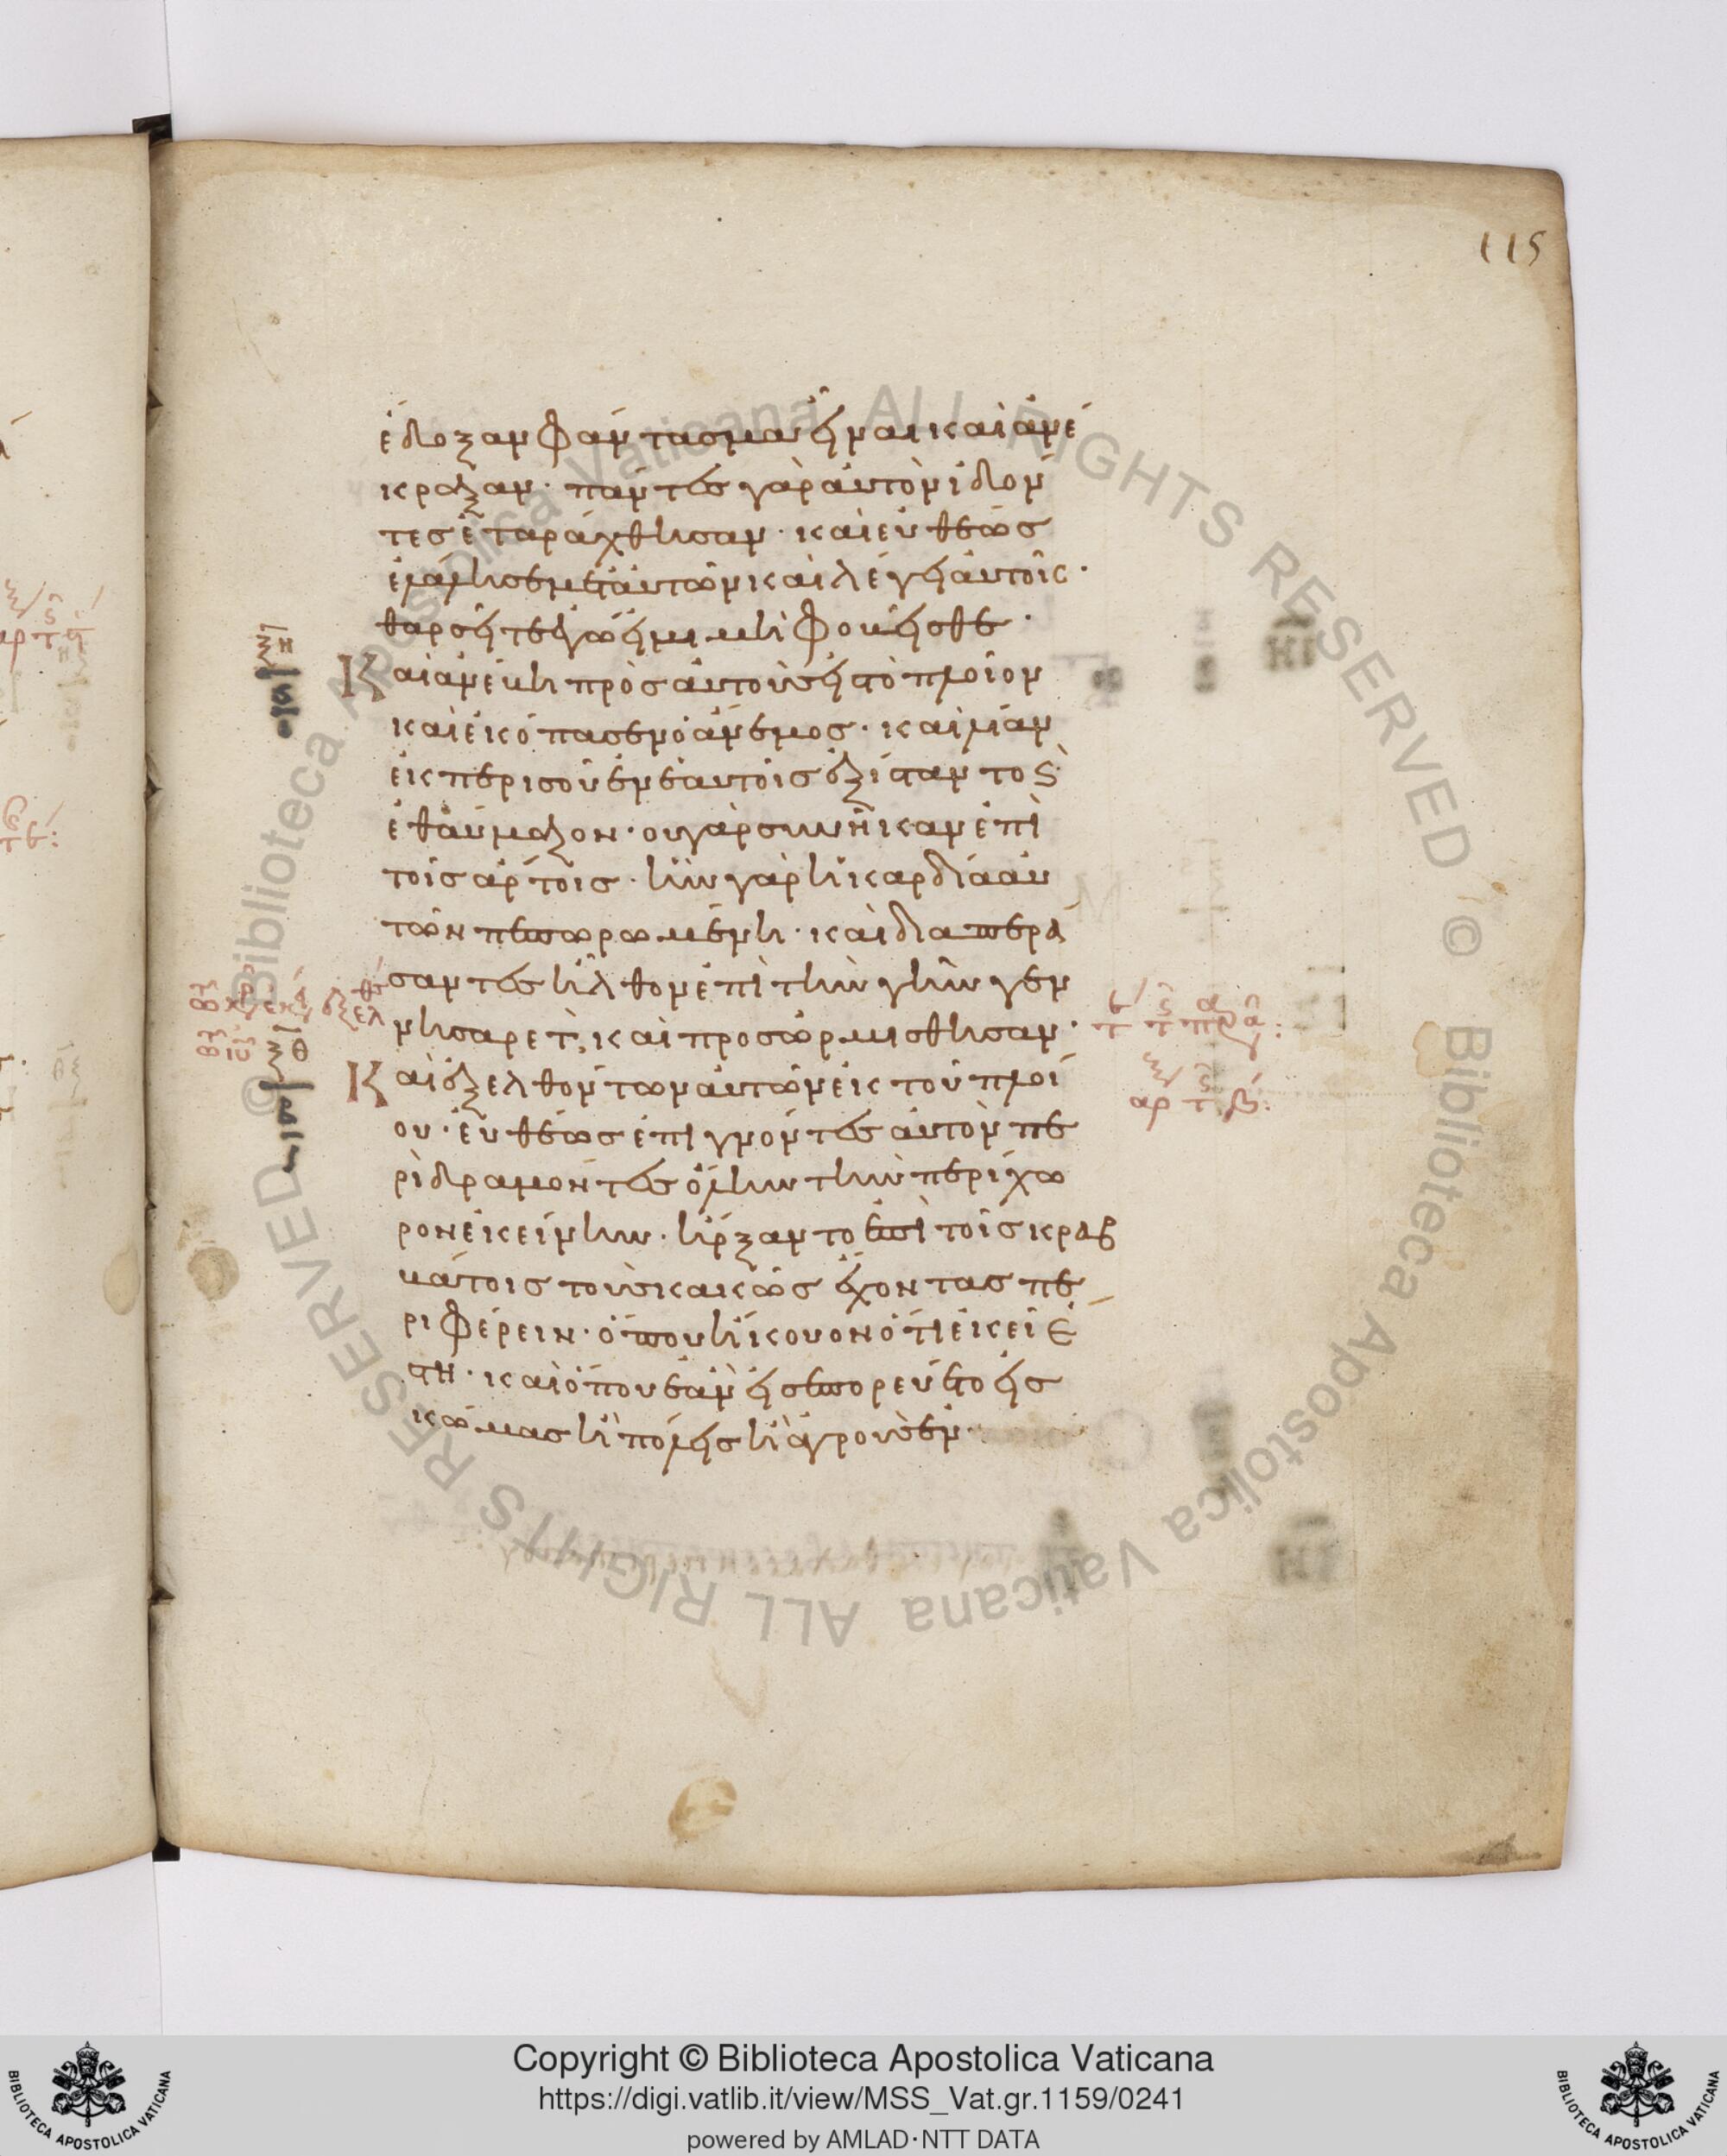 115
ἔδοξαν φάντασμα εἶναι καὶ ἀνέ
κραξαν· πάντες γὰρ αὐτὸν ἰδόν
τες ἐταράχθησαν· καὶ εὐθέως
ἐλάλησεν μετ' αὐτῶν καὶ λέγει αὐτοῖς·
θαρσεῖτε ἐγώ εἰμι μὴ φοβεῖσθε·
Καὶ ἀνέβη πρὸς αὐτοὺς εἰς τὸ πλοῖον
καὶ ἐκόπασεν ὁ ἄνεμος· καὶ λίαν
ἐκ περισοῦ ἐν ἑαυτοῖς ἐξίσταντο καὶ
ἐθαύμαζον· οὐ γὰρ συνῆκαν ἐπὶ
τοῖς ἄρτοις· ἦν γὰρ ἡ καρδία αὐ
τῶν πεπωρωμένη· καὶ διαπερά
σαντες ἦλθον ἐπὶ τὴν γῆν γεν
νησαρετ, καὶ προσωρμίσθησαν·
Καὶ ἐξελθόντων αὐτῶν ἐκ τοῦ πλοί
ου· εὐθέως ἐπιγνόντες αὐτὸν πε
ριδραμόντες ὅλην τὴν περίχω
ρον ἐκείνην· ἤρξαντο ἐπὶ τοῖς κραβ
βάτοις τοὺς κακῶς ἔχοντας πε
ριφέρειν· ὅπου ἤκουον ὅτι ἐκεῖ ἐ
στι· καὶ ὅπου ἐὰν εἰσεπορεύετο εἰς
κώμας ἢ πόλεις ἢ ἀγροὺς ἐν
© Biblioteca Apostolica Vaticana ALL RIGHTS RESERVED
© Biblioteca Apostolica Vaticana ALL RIGHTS RESERVED
Copyright © Biblioteca Apostolica Vaticana
https://digi.vatlib.it/view/MSS_Vat.gr.1159/0241
powered by AMLAD·NTT DATA
BIBLIOTECA APOSTOLICA VATICANA
BIBLIOTECA APOSTOLICA VATICANA